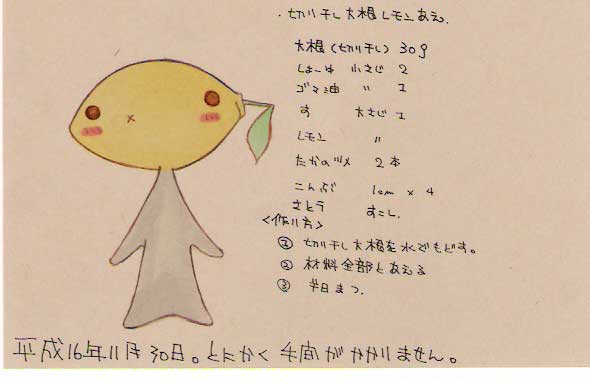 ・切り干し大根レモンあえ.
大根(切り干し) 30g
しょーゆ 小さじ 2
ゴマ油 〃 1
す 大さじ 1
レモン 〃
たかのツメ 2本
こんぶ 1cm × 4
さとう すこし.
<作り方>
① 切り干し大根を水でもどす。
② 材料全部とあえる
③ 半日まつ.
平成16年11月30日。とにかく手間がかかりません。